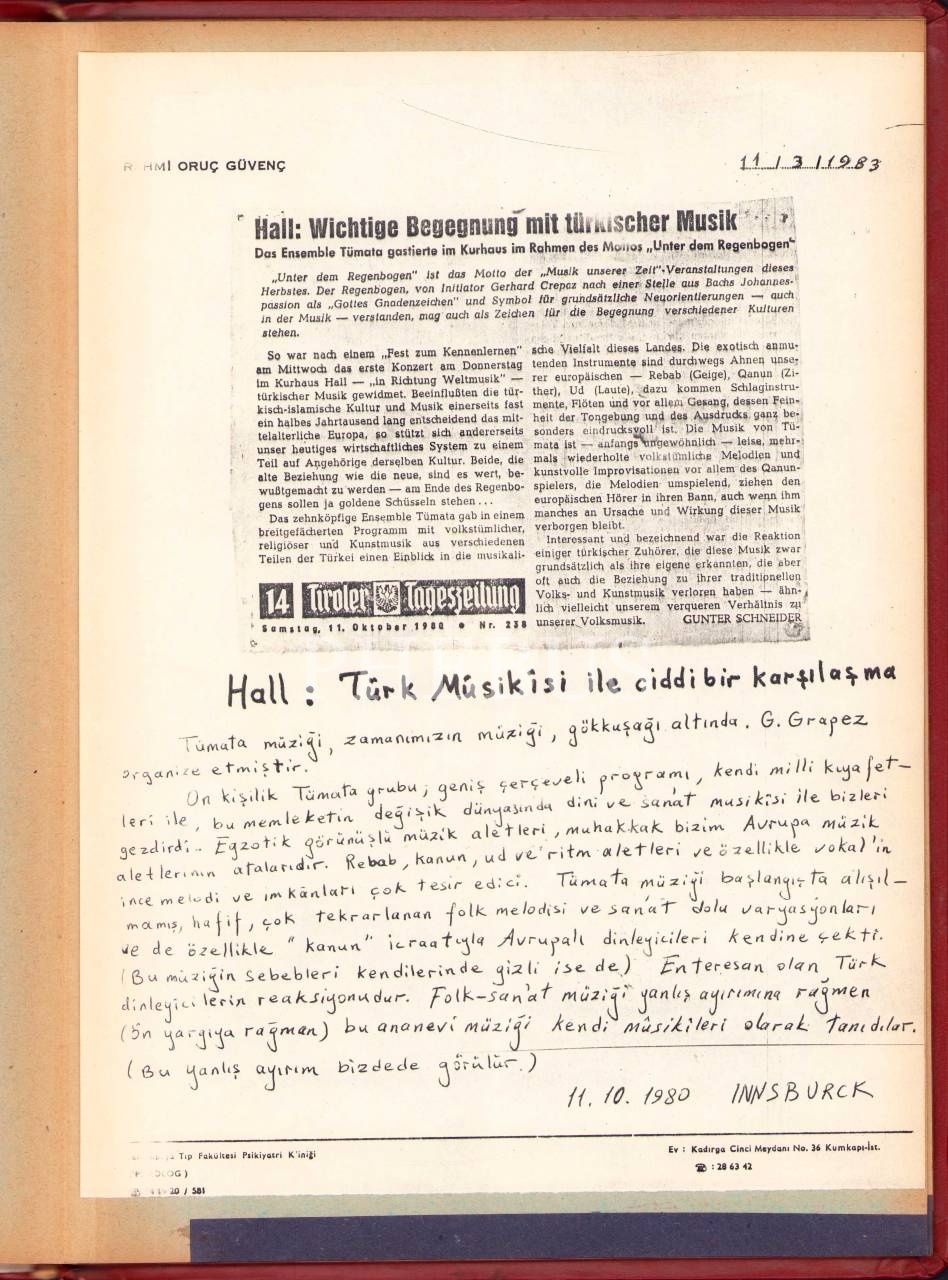 HMİ ORUÇ GÜVENÇ
11/3/1983
Hall: Wichtige Begegnung mit türkischer Musik
Das Ensemble Tümata gastierte im Kurhaus im Rahmen des Mottos „Unter dem Regenbogen“
„Unter dem Regenbogen“ ist das Motto der „Musik unserer Zeit“-Veranstaltungen dieses
Herbstes. Der Regenbogen, von Initiator Gerhard Crepaz nach einer Stelle aus Bachs Johannes-
passion als „Gottes Gnadenzeichen“ und Symbol für grundsätzliche Neuorientierungen — auch
in der Musik — verstanden, mag auch als Zeichen für die Begegnung verschiedener Kulturen
stehen.
So war nach einem „Fest zum Kennenlernen“
am Mittwoch das erste Konzert am Donnerstag
im Kurhaus Hall — „in Richtung Weltmusik“ —
türkischer Musik gewidmet. Beeinflußten die tür-
kisch-islamische Kultur und Musik einerseits fast
ein halbes Jahrtausend lang entscheidend das mit-
telalterliche Europa, so stützt sich andererseits
unser heutiges wirtschaftliches System zu einem
Teil auf Angehörige derselben Kultur. Beide, die
alte Beziehung wie die neue, sind es wert, be-
wußtgemacht zu werden — am Ende des Regenbo-
gens sollen ja goldene Schüsseln stehen ...
Das zehnköpfige Ensemble Tümata gab in einem
breitgefächerten Programm mit volkstümlicher,
religiöser und Kunstmusik aus verschiedenen
Teilen der Türkei einen Einblick in die musikali-
sche Vielfalt dieses Landes. Die exotisch anmu-
tenden Instrumente sind durchwegs Ahnen unse-
rer europäischen — Rebab (Geige), Qanun (Zi-
ther), Ud (Laute), dazu kommen Schlaginstru-
mente, Flöten und vor allem Gesang, dessen Fein-
heit der Tongebung und des Ausdrucks ganz be-
sonders eindrucksvoll ist. Die Musik von Tü-
mata ist — anfangs ungewöhnlich — leise, mehr-
mals wiederholte volkstümliche Melodien und
kunstvolle Improvisationen vor allem des Qanun-
spielers, die Melodien umspielend, ziehen den
europäischen Hörer in ihren Bann, auch wenn ihm
manches an Ursache und Wirkung dieser Musik
verborgen bleibt.
Interessant und bezeichnend war die Reaktion
einiger türkischer Zuhörer, die diese Musik zwar
grundsätzlich als ihre eigene erkannten, die aber
oft auch die Beziehung zu ihrer traditionellen
Volks- und Kunstmusik verloren haben — ähn-
lich vielleicht unserem verqueren Verhältnis zu
unserer Volksmusik. GUNTER SCHNEIDER
14 Tiroler Tageszeitung
Samstag, 11. Oktober 1980 • Nr. 238
Hall : Türk Mûsikîsi ile ciddi bir karşılaşma
Tümata müziği, zamanımızın müziği, gökkuşağı altında. G. Grapez
organize etmiştir.
On kişilik Tümata grubu, geniş çerçeveli programı, kendi milli kıyafet-
leri ile, bu memleketin değişik dünyasında dini ve san'at musikîsi ile bizleri
gezdirdi.. Egzotik görünüşlü müzik aletleri, muhakkak bizim Avrupa müzik
aletlerinin atalarıdır. Rebab, kanun, ud ve ritm aletleri ve özellikle vokal'in
ince melodi ve imkânları çok tesir edici. Tümata müziği başlangışta alışıl-
mamış, hafif, çok tekrarlanan folk melodisi ve san'at dolu varyasyonları
ve de özellikle "kanun" icraatıyla Avrupalı dinleyicileri kendine çekti.
(Bu müziğin sebebleri kendilerinde gizli ise de) Enteresan olan, Türk
dinleyicilerin reaksiyonudur. Folk-san'at müziği yanlış ayırımına rağmen
(ön yargıya rağman) bu ananevi müziği kendi mûsikîleri olarak tanıdılar.
(Bu yanlış ayırım bizdede görülür.)
11. 10. 1980 INNSBURCK
Tıp Fakültesi Psikiyatri K'iniği
OLOG)
20 / 581
Ev : Kadırga Cinci Meydanı No. 36 Kumkapı-İst.
☎ : 28 63 42